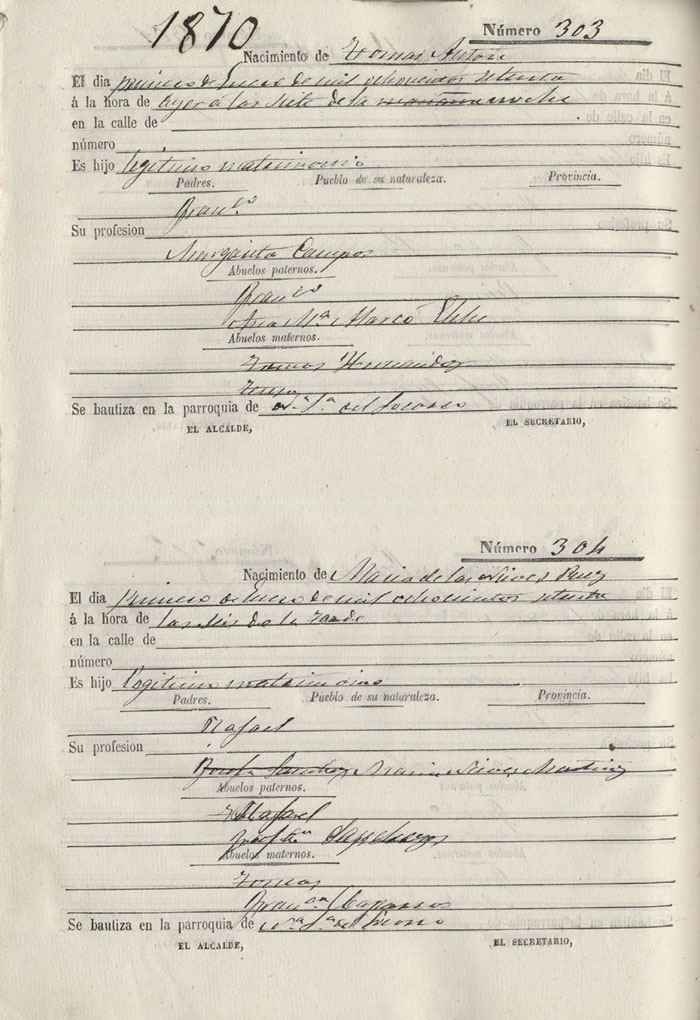 1870
Número 303
Nacimiento de Tomas Anton
El dia primero de Enero de mil ochocientos setenta
á la hora de ayer a las siete de la mañana noche
en la calle de
número
Es hijo legitimo matrimonio
Padres. Pueblo de su naturaleza. Provincia.
Fran.co
Su profesion
Margarita Campos
Abuelos paternos.
Fran.co
Ana M.a Marco
Abuelos maternos.
Tomas Hernandez
Se bautiza en la parroquia de N.a S.a del Socorro
EL ALCALDE, EL SECRETARIO,
Número 304
Nacimiento de Maria de las Nieves Perez
El dia primero de Enero de mil ochocientos setenta
á la hora de las seis de la tarde
en la calle de
número
Es hijo Legitimo matrimonio
Padres. Pueblo de su naturaleza. Provincia.
Rafael
Su profesion
Josefa Sanchez Maria Nieves Martinez
Abuelos paternos.
Rafael
Josefa Sanchez
Abuelos maternos.
Tomas
Fran.ca
Se bautiza en la parroquia de N.a S.a del Socorro
EL ALCALDE, EL SECRETARIO,